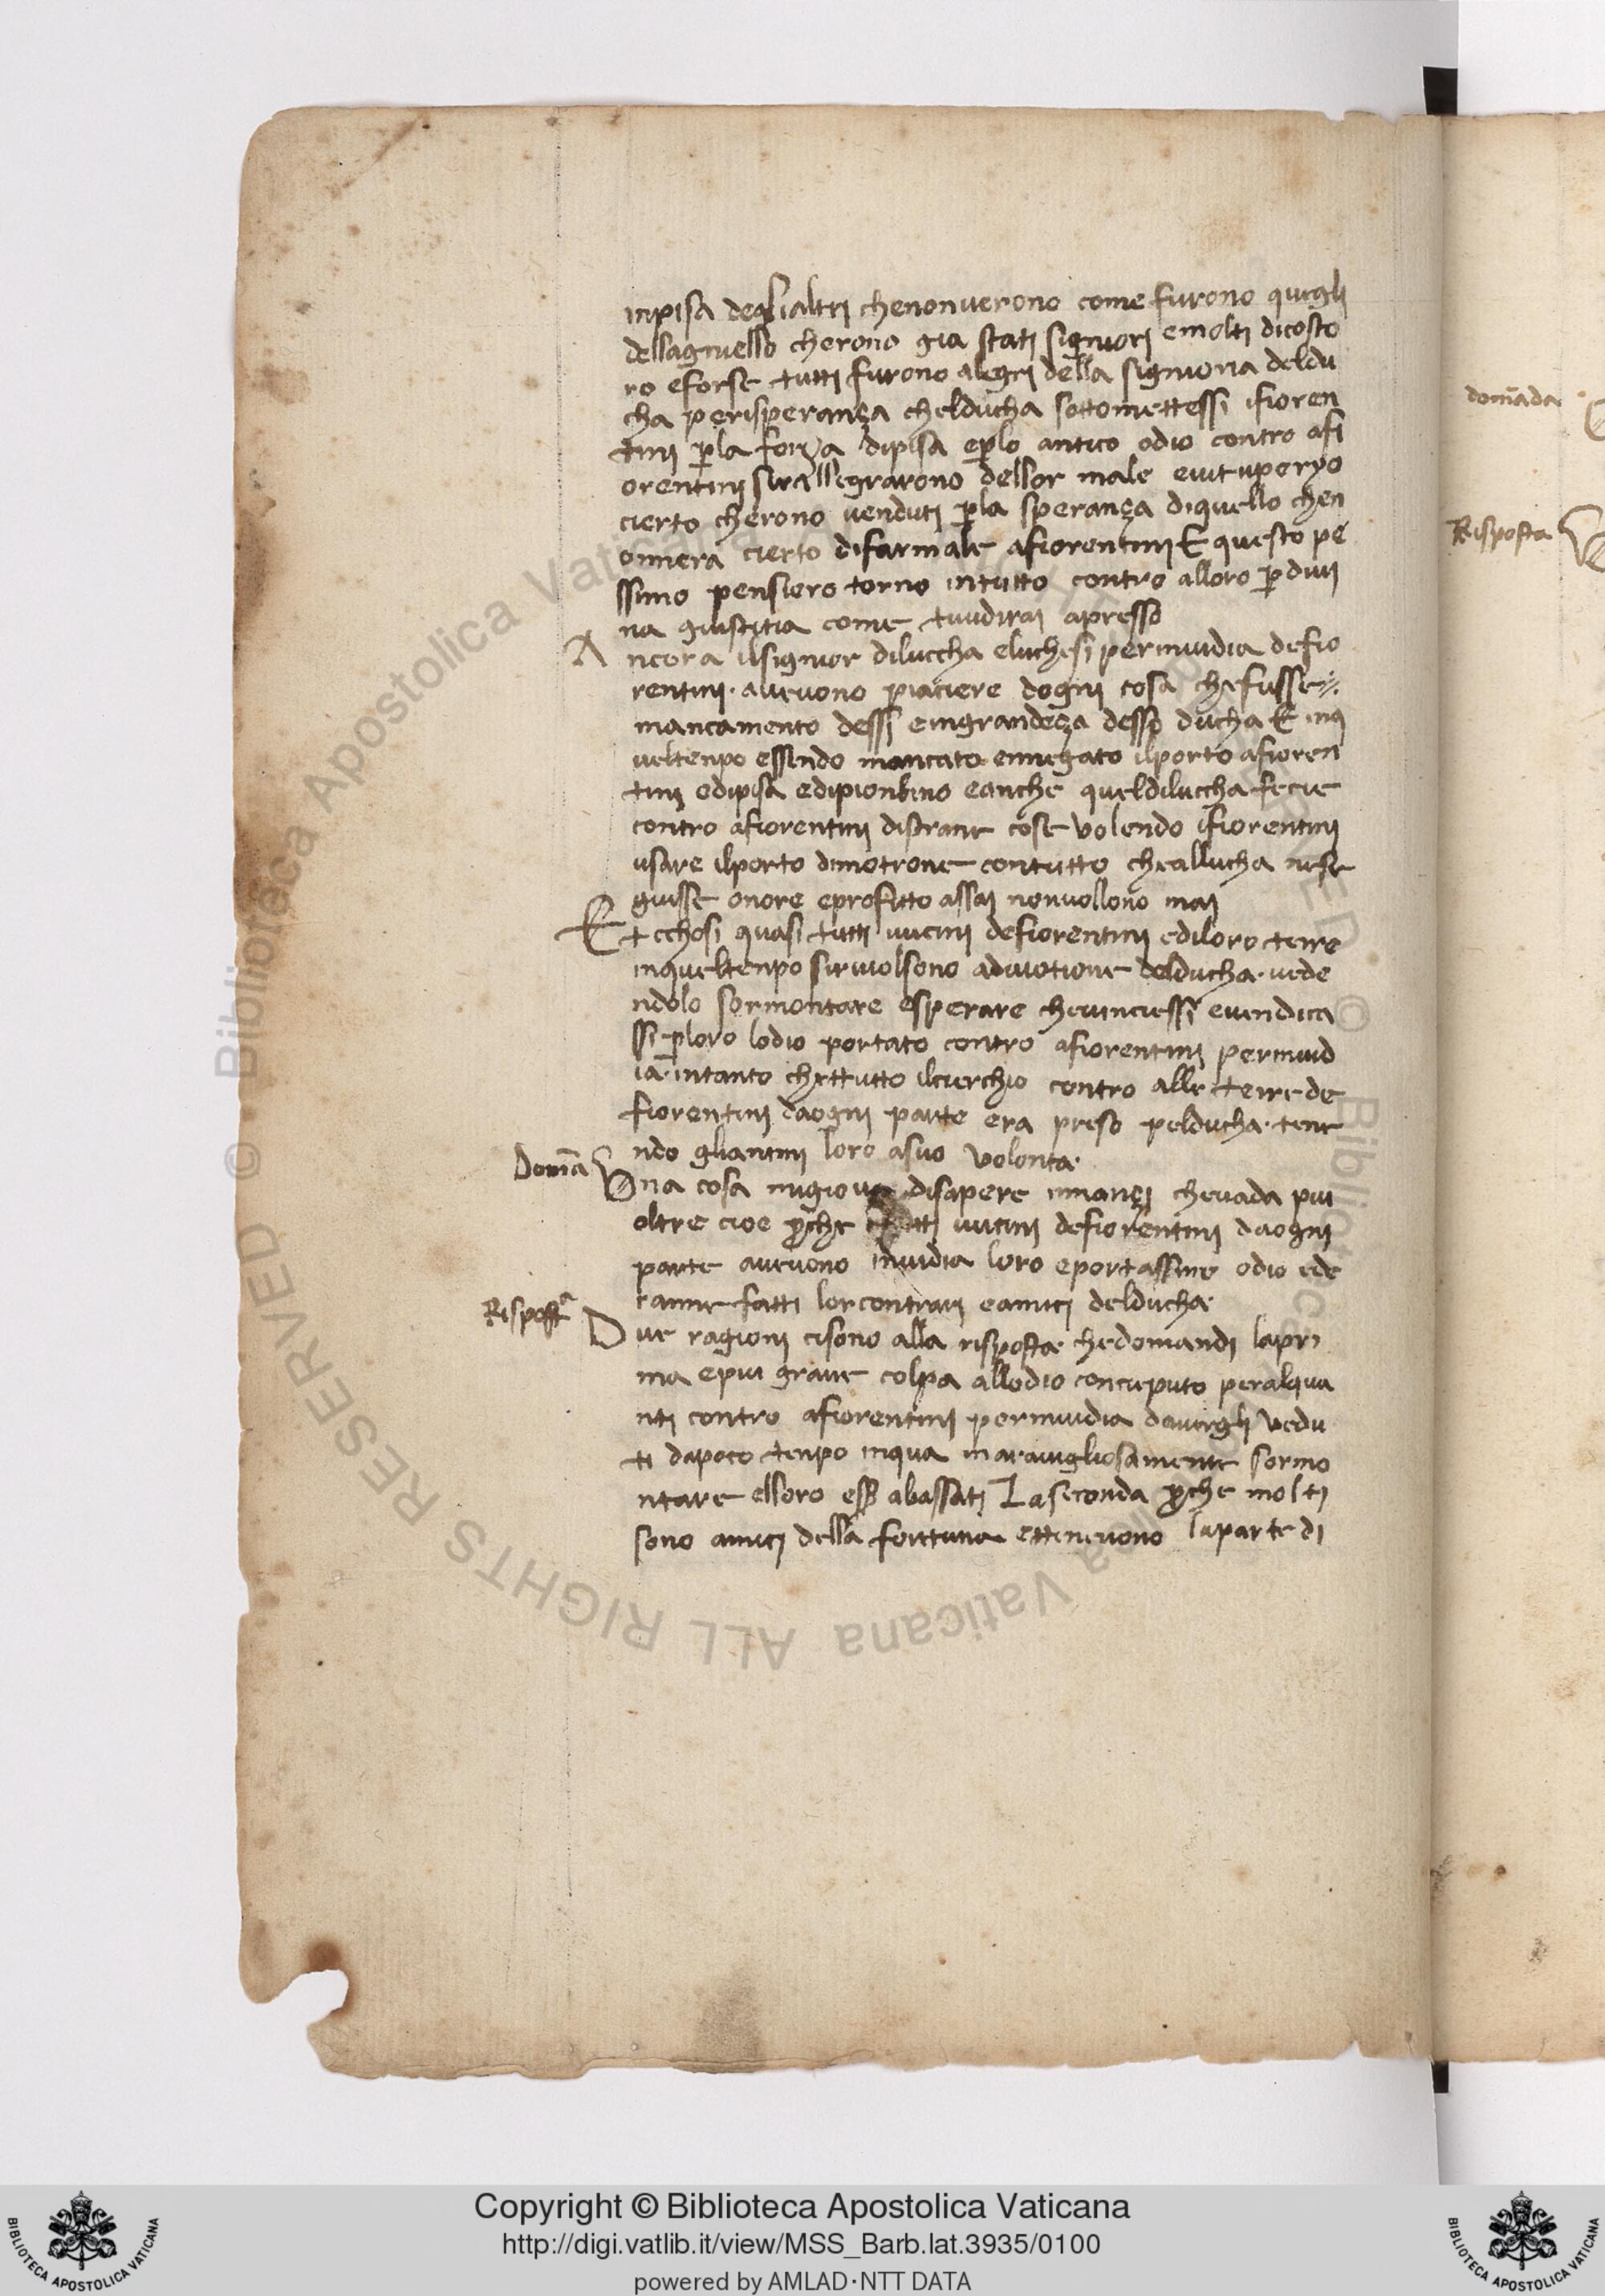 inpisa degli altri chenonverono come furono quegli
dellagniello cherono gia stati signiori emolti dicosto
ro eforse tutti furono alegri della signioria deldu
cha perisperança chelducha sottomettessi ifioren
tini p̱la forza dipisa ep̱lo antico odio contro afi
orentini sirallegrarono dellor male evituperyo
cierto cherono venduti p̱la sperança diquello chen
onniera cierto difarmale afiorentini E questo pe
ssimo pensiero torno intutto contro alloro p̱divi
na giustitia come tuudirai apresso
A ncora ilsignior diluccha eluchesi perinvidia defio
rentini · avevono piaciere dogni cosa chefusse
mancamento dessi eingrandeça desso ducha E inq
ueltenpo essendo mancato ennegato ilporto afioren
tini edipisa edipionbino eanche queldiluccha fecie
contro afiorentini distrane cose volendo ifiorentini
usare ilporto dimotrone contutto cheallucha nese
guisse onore eprofitto assai nonvollono mai
E t cchosi quasi tutti vicini defiorentini ediloro terre
inqueltenpo sirivolsono adivotione delducha · vede
ndolo sormontare esperare chevinciessi evendica
ssi p̱loro lodio portato contro afiorentini perinvid
ia · intanto chettutto ilcierchio contro alle terre de
fiorentini daogni parte era preso pelducha · tene
ndo gliantini loro asuo volonta ·
Domā
V na cosa migiova disapere innançi chevada piu
oltre cioe p̱che tutti vicini defiorentini daogni
parte avevono invidia loro eportassino odio ede
ranne fatti lorcontrari eamici delducha ·
Rispostª
D ue ragioni cisono alla risposta chedomandi lapri
ma epiu grave colpa allodio conceputo peralqua
nti contro afiorentini perinvidia davergli vedu
ti dapoco tenpo inqua maravigliosamente sormo
ntare elloro esβ abassati La seconda p̱che molti
sono amici della fortuna ettenevono laparte di
domāda
Risposta
© Biblioteca Apostolica Vaticana ALL RIGHTS RESERVED
Copyright © Biblioteca Apostolica Vaticana
http://digi.vatlib.it/view/MSS_Barb.lat.3935/0100
powered by AMLAD·NTT DATA
BIBLIOTECA APOSTOLICA VATICANA
BIBLIOTECA APOSTOLICA VATICANA